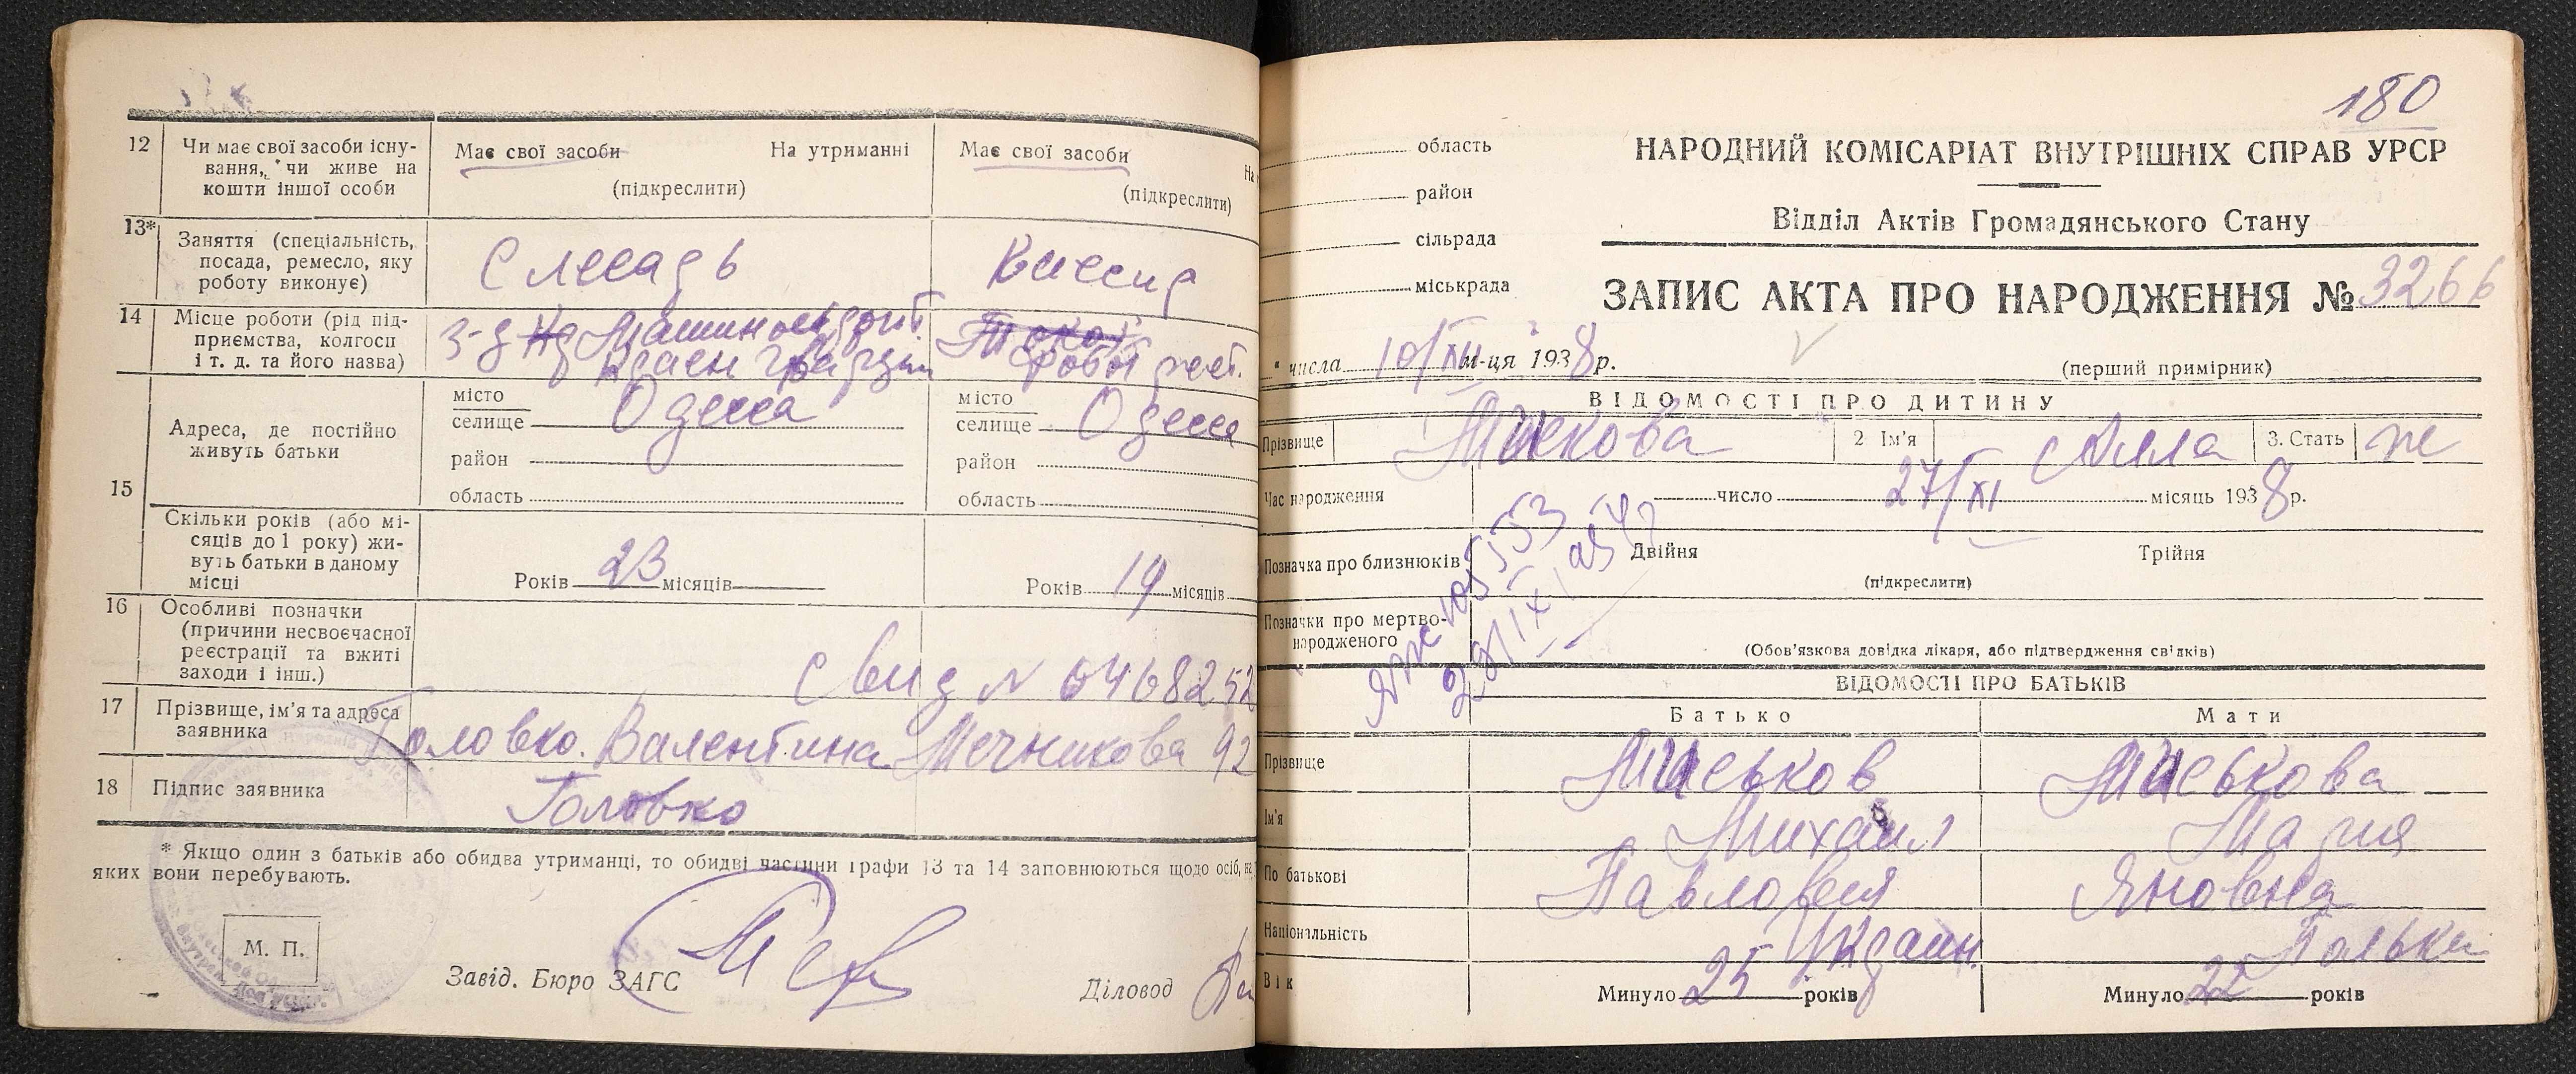 12 Чи має свої засоби існу-
вання, чи живе на
кошти іншої особи
Має свої засоби На утриманні
(підкреслити)
Має свої засоби На
(підкреслити)
13* Заняття (спеціальність,
посада, ремесло, яку
роботу виконує)
Слесарь
Кассир
14 Місце роботи (рід під-
приємства, колгосп
і т. д. та його назва)
з-д
Красн гвардии
15 Адреса, де постійно
живуть батьки
місто
селище Одесса
район
область
місто
селище Одесса
район
область
Скільки років (або мі-
сяців до 1 року) жи-
вуть батьки в даному
місці
Років 23 місяців
Років 19 місяців
16 Особливі позначки
(причини несвоєчасної
реєстрації та вжиті
заходи і інш.)
Свид N 0468252
17 Прізвище, ім'я та адреса
заявника
Головко Валентина Мечникова 92
18 Підпис заявника Головко
* Якщо один з батьків або обидва утриманці, то обидві частини графи 13 та 14 заповнюються щодо осіб, на
яких вони перебувають.
М. П.
Завід. Бюро ЗАГС
Діловод
180
область
район
сільрада
міськрада
НАРОДНИЙ КОМІСАРІАТ ВНУТРІШНІХ СПРАВ УРСР
Відділ Актів Громадянського Стану
ЗАПИС АКТА ПРО НАРОДЖЕННЯ № 3266
числа 10/XII м-ця 1938 р.
(перший примірник)
ВІДОМОСТІ ПРО ДИТИНУ
Прізвище 2 Ім'я Алла 3. Стать ж
Час народження число 27/XI місяць 1938 р.
Позначка про близнюків Двійня Трійня
(підкреслити)
Позначки про мертво-
народженого
(Обов'язкова довідка лікаря, або підтвердження свідків)
ВІДОМОСТІ ПРО БАТЬКІВ
Батько Мати
Прізвище Миськов Миськова
Ім'я Михаил Мария
По батькові Яновна
Національність Украин. Полька
Вік Минуло 25 років Минуло 22 років